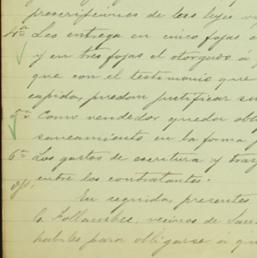 prescripciones de las leyes v
4ª Les entrega en cinco fojas
y en tres fojas el otorgado á
que con el testimonio que
cupida, puedan justificar su
5ª Como vendedor queda obl
saneamiento en la forma
6ª Los gastos de escritura y
entre los contratantes.
En seguida presentes
la Follansbee, vecinos de
habiles para obligarse á que